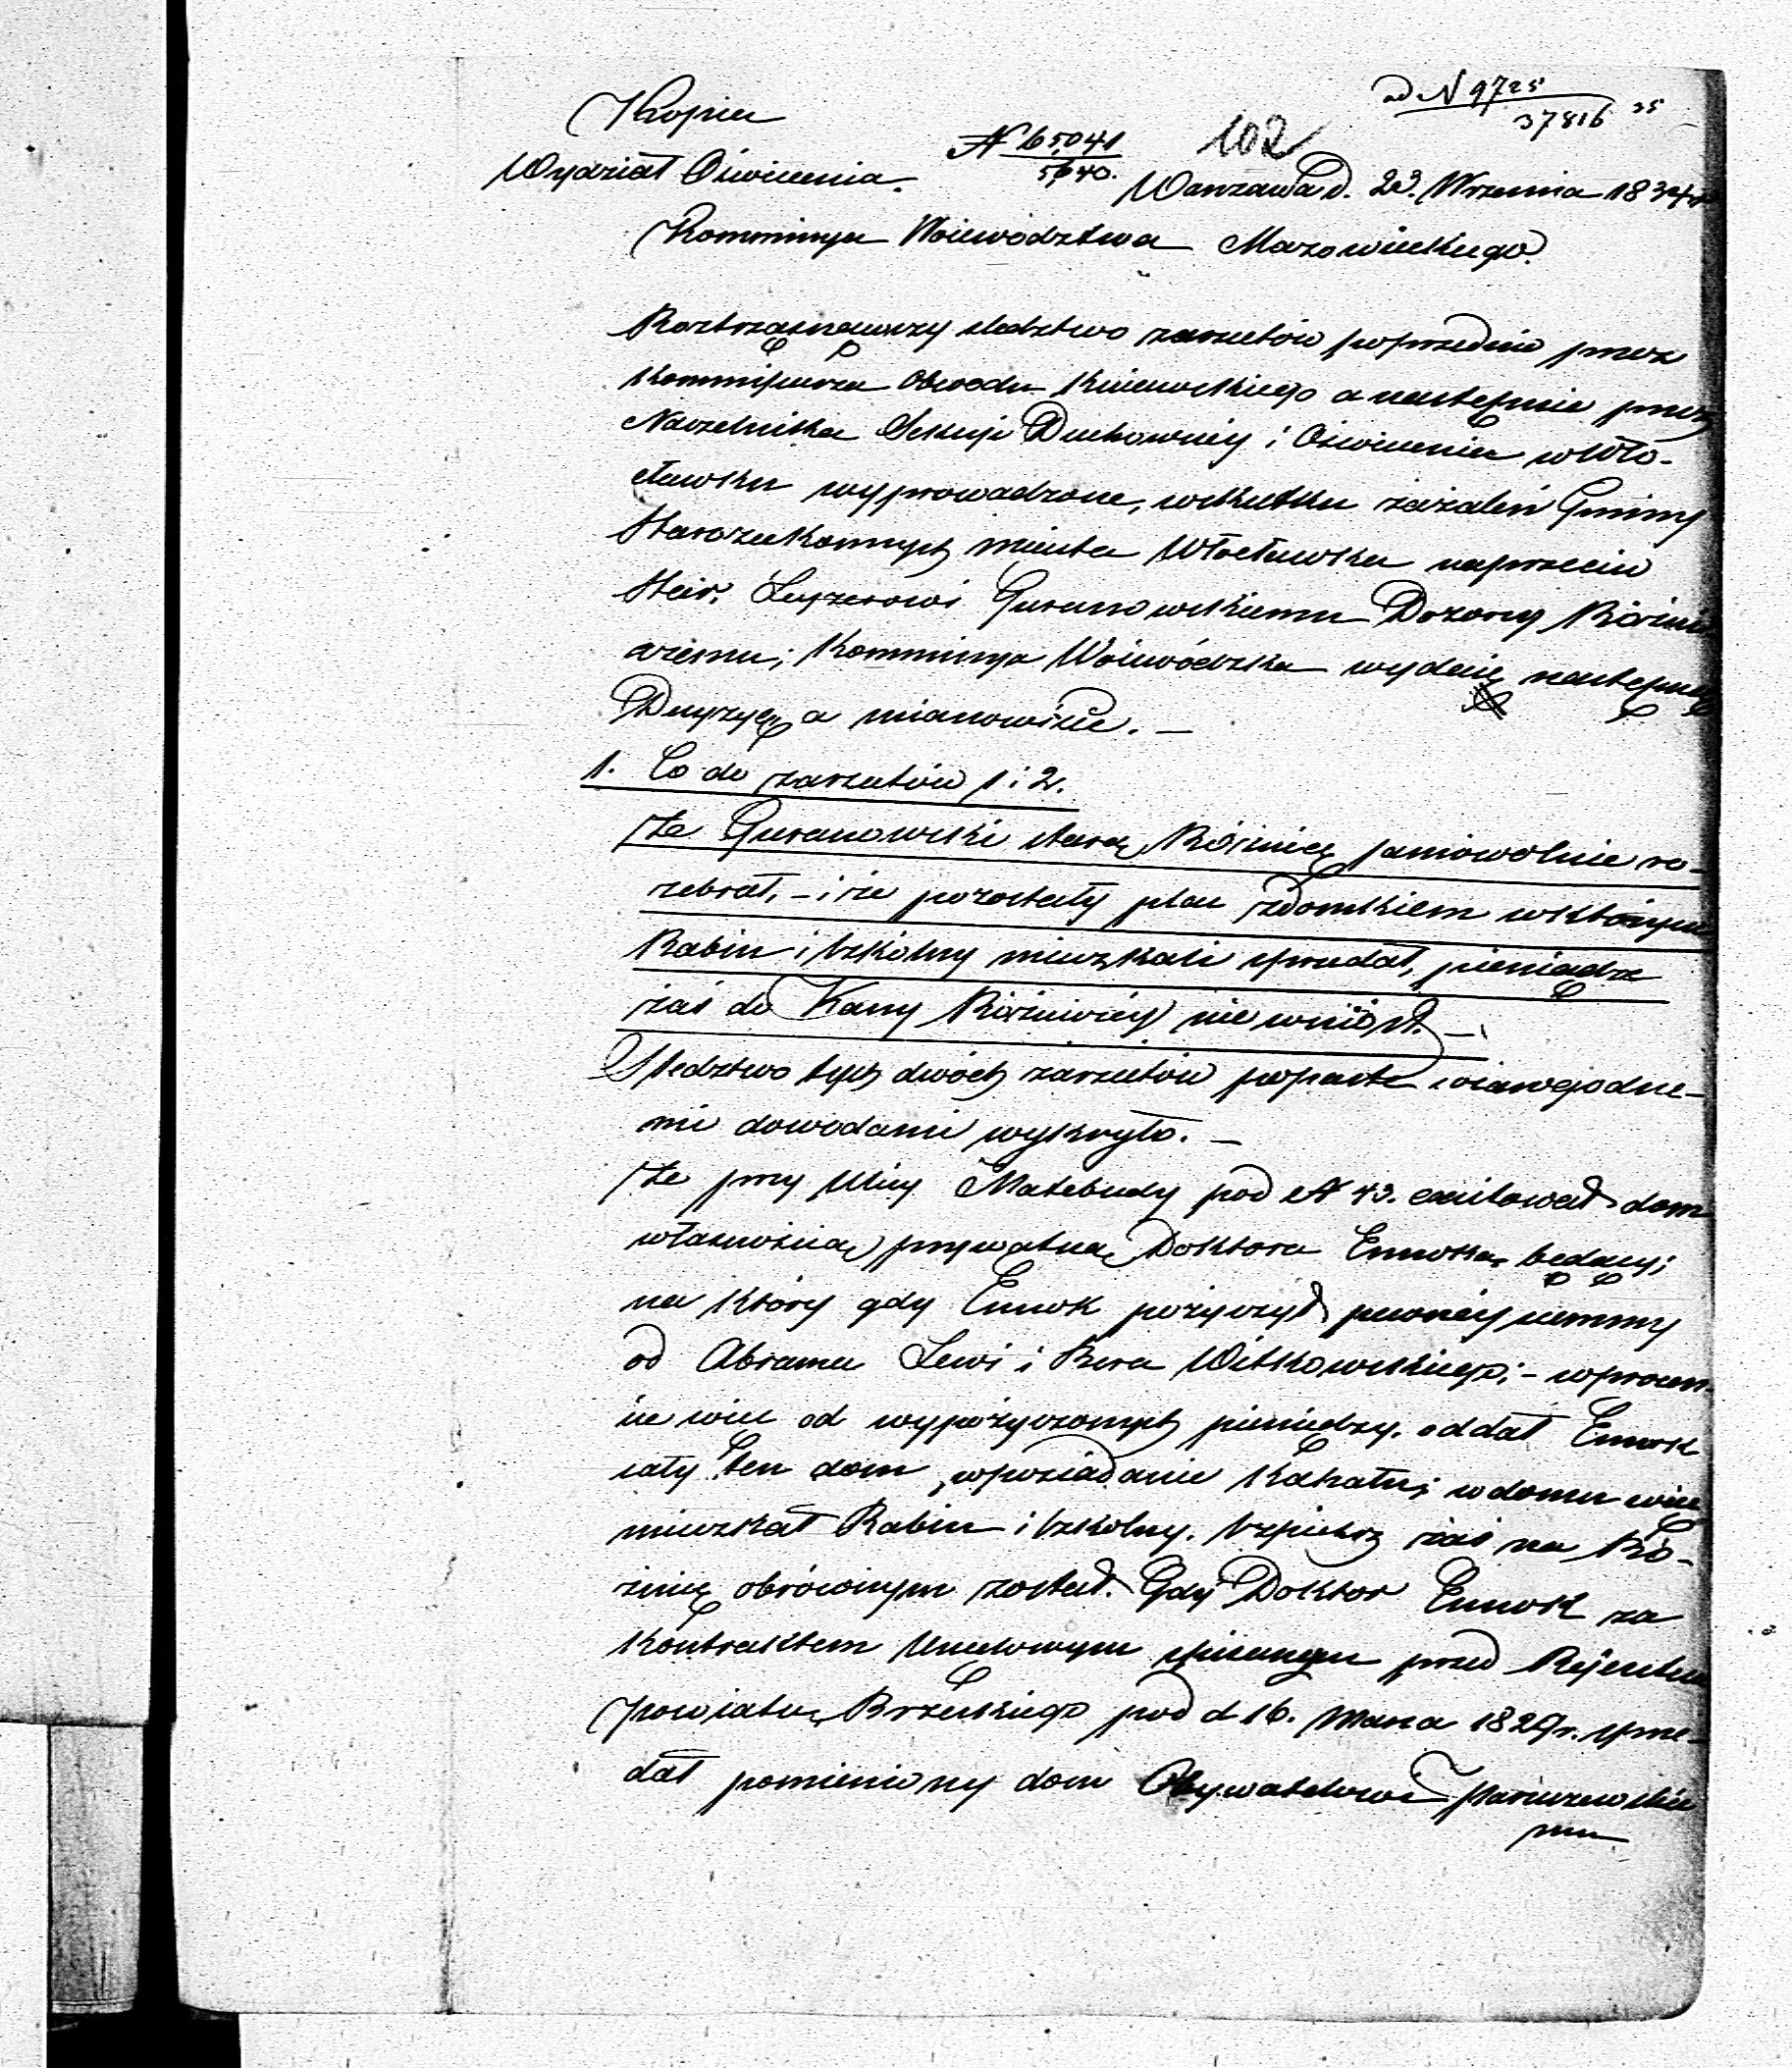 ad N 9725
37816 35
Kopia
N 65041
5640.
102
Wydział Oświecenia.
Warszawa d. 23. Września 1834 r
Kommissya Woiewództwa Mazowieckiego.
Roztrząsnąwszy śledztwo zarzutów poprzednio przez
Kommissarza Obwodu Kuiawskiego a następnie przez
Naczelnika Sekcyi Duchowney i Oświecenia w Wło-
cławsku wyprowadzone, wskutku zażaleń Gminy
Starozakonnych miasta Włocławska naprzeciw
Star. Leyzerowi Guranowskiemu Dozorcy Bóżni-
czemu; Kommissya Woiewódzka wydaie następną
Decyzyę a mianowicie. —
1. Co do zarzutów 1 i 2.
Że Guranowski starą Bóżnicę samowolnie ro-
zebrał, – i że pozostały plac z domkiem w którym
Rabin i Szkolny mieszkali sprzedał, pieniądze
zaś do Kassy Bóżniczey nie wniósł. —
Śledztwo tych dwóch zarzutów poparte wiarygodne-
mi dowodami wykryło. —
Że przy Ulicy Matebudy pod N 43. exystował dom
własnością prywatną Doktora Ennoka będący;
na który gdy Ennok pożyczył pewney summy
od Abrama Lewi i Bera Witkowskiego; – w procen-
cie więc od wypożyczonych pieniędzy. oddał Ennok
cały ten dom w posiadanie Kahału; w domu więc
mieszkał Rabin i Szkolny. Szpichrz zaś na Bó-
żnicę obróconym został. Gdy Doktor Ennok za
Kontraktem Urzędowym spisanym przed Rejentem
Powiatu Brzeskiego pod d 16. Marca 1829 r. sprze-
dał pomieniony dom Obywatelowi
mu